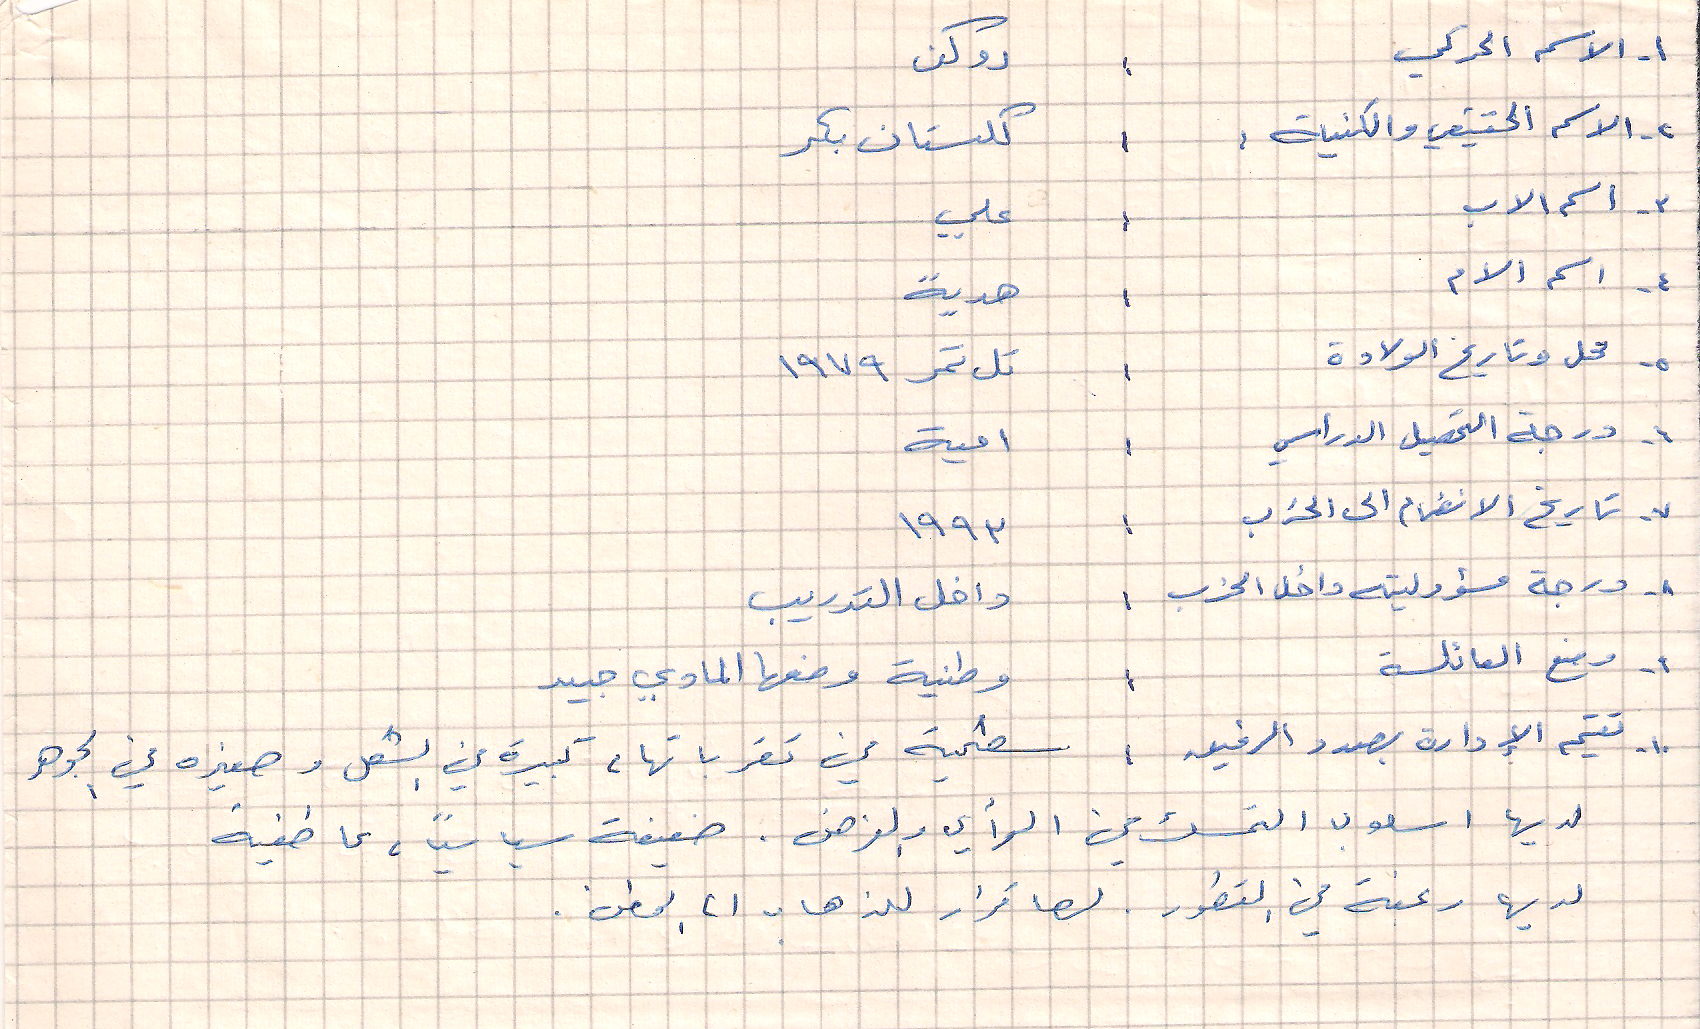 ١- الاسم الحركي : روكن
٢- الاسم الحقيقي والكنية : : گلستان بكر
٣- اسم الاب : علي
٤- اسم الام : هدية
٥- محل وتاريخ الولادة : تل تمر ١٩٧٩
٦- درجة التحصيل الدراسي : امية
٧- تاريخ الانضمام الى الحزب : ١٩٩٣
٨- درجة مسؤوليته داخل الحزب : داخل التدريب
٩- وضع العائلة : وطنية وضعها المادي جيد
١٠- تقيم الإدارة بصدد الرفيق : سطحية في تقرباتها، كبيرة في الشكل و صغيره في الجوهر
لديها اسلوب التمسك في الرأي والرفض . ضعيفة سياسياً، عاطفية
لديها رغبة في التطور . لها قرار للذهاب الى الوطن .